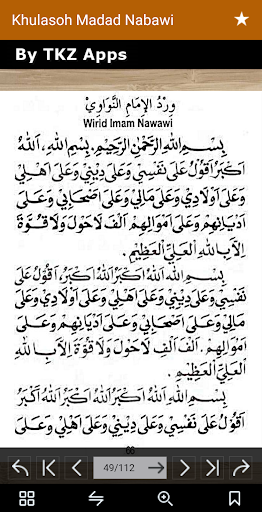 Khulasoh Madad Nabawi
By TKZ Apps
وِرْدُ الإِمَامِ النَّوَاوِيْ
Wirid Imam Nawawi
بِسْمِ اللهِ الرَّحْمٰنِ الرَّحِيْمِ. بِسْمِ اللهِ، اَللهُ
اَكْبَرُ اَقُوْلُ عَلَى نَفْسِيْ وَعَلَى دِيْنِيْ وَعَلَى اَهْلِيْ
وَعَلَى اَوْلَادِيْ وَعَلَى مَالِيْ وَعَلَى اَصْحَابِيْ وَعَلَى
اَدْيَانِهِمْ وَعَلَى اَمْوَالِهِمْ اَلْفَ لَاحَوْلَ وَلَا قُوَّةَ
اِلَّا بِاللهِ الْعَلِيِّ الْعَظِيْمِ.
بِسْمِ اللهِ اَللهُ اَكْبَرُ اَللهُ اَكْبَرُ، اَقُوْلُ عَلَى
نَفْسِيْ وَعَلَى دِيْنِيْ وَعَلَى اَهْلِيْ وَعَلَى اَوْلَادِيْ وَعَلَى
مَالِيْ وَعَلَى اَصْحَابِيْ وَعَلَى اَدْيَانِهِمْ وَعَلَى
اَمْوَالِهِمْ. اَلْفَ اَلْفِ لَاحَوْلَ وَلَا قُوَّةَ اِلَّا بِاللهِ
الْعَلِيِّ الْعَظِيْمِ.
بِسْمِ اللهِ اَللهُ اَكْبَرُ اَللهُ اَكْبَرُ اَللهُ اَكْبَرُ
اَقُوْلُ عَلَى نَفْسِيْ وَعَلَى دِيْنِيْ وَعَلَى اَهْلِيْ وَعَلَى
66
49/112